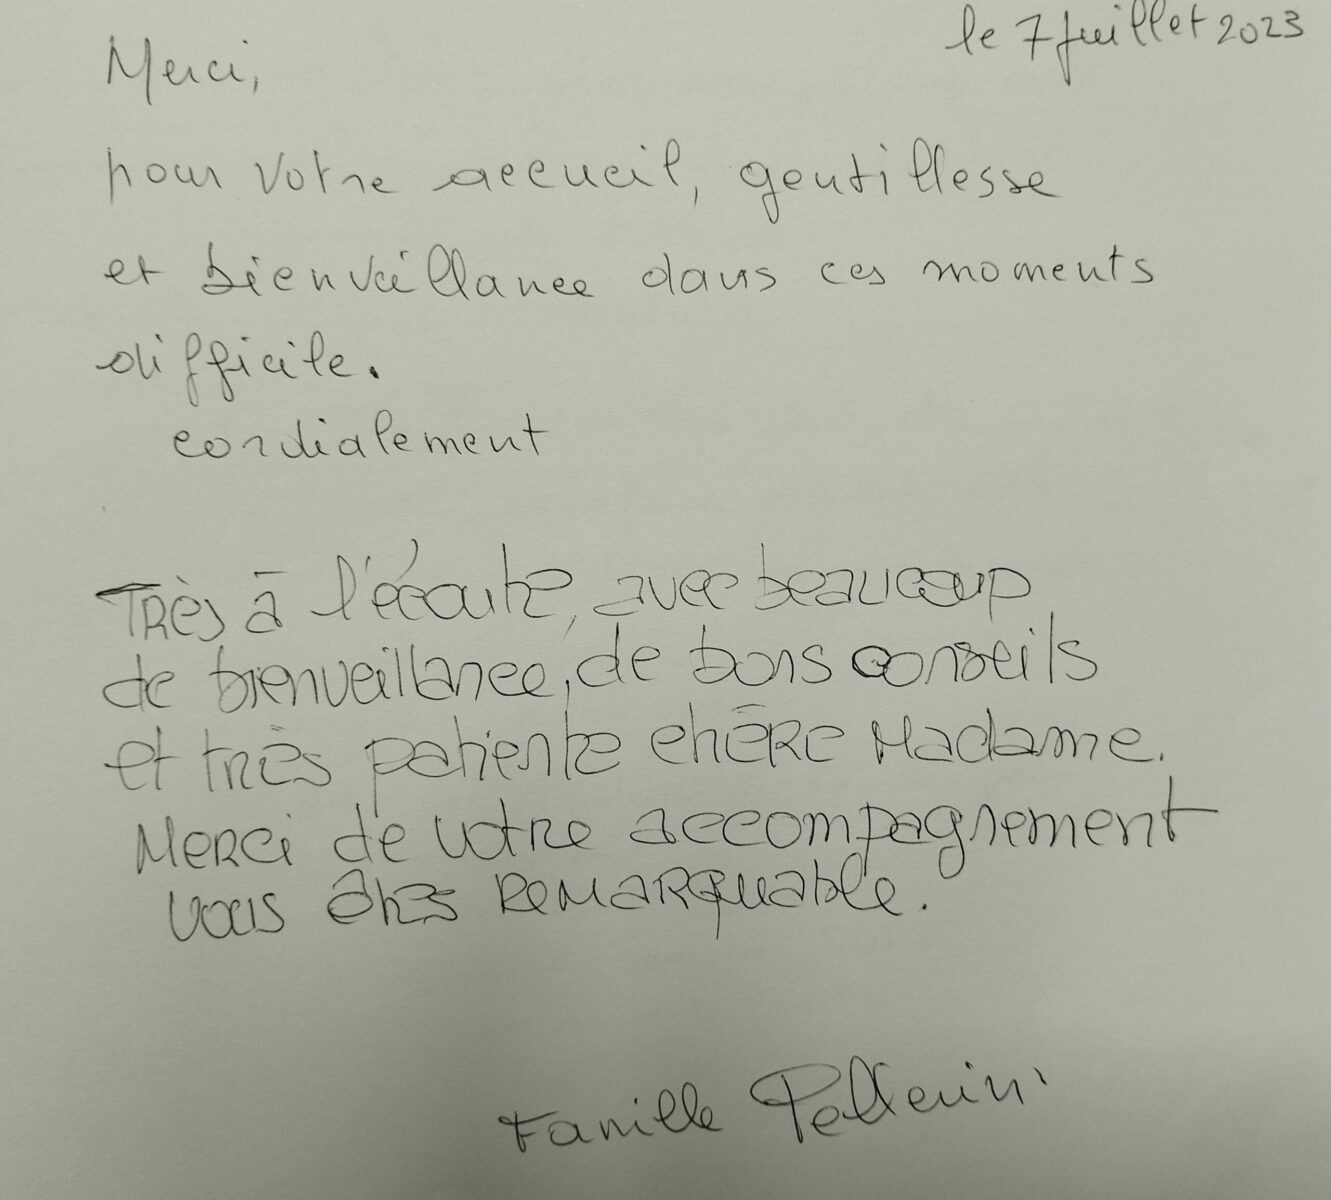 le 7 Juillet 2023
Merci,
pour votre accueil, gentillesse
et bienveillance dans ces moments
difficile.
cordialement
Très à l'écoute, avec beaucoup
de bienveillance, de bons conseils
et très patiente chère Madame.
Merci de votre accompagnement
vous êtes remarquable.
Famille